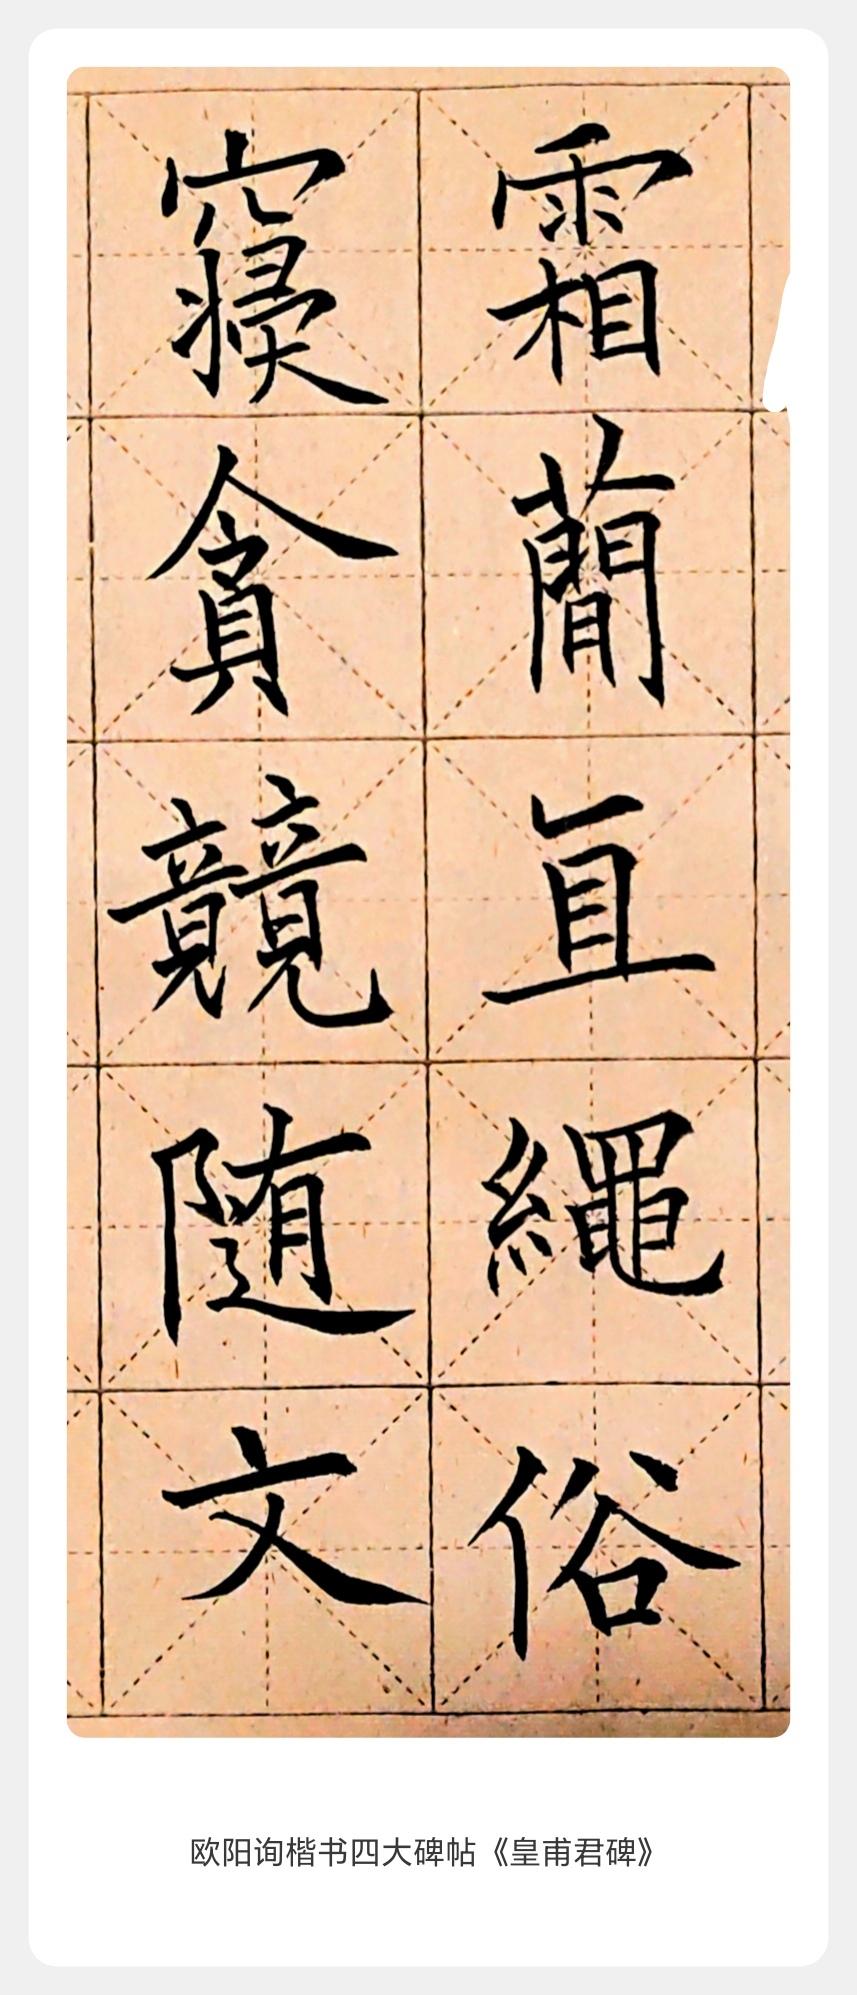 霜蕳直繩俗
寢貪競随文
欧阳询楷书四大碑帖《皇甫君碑》